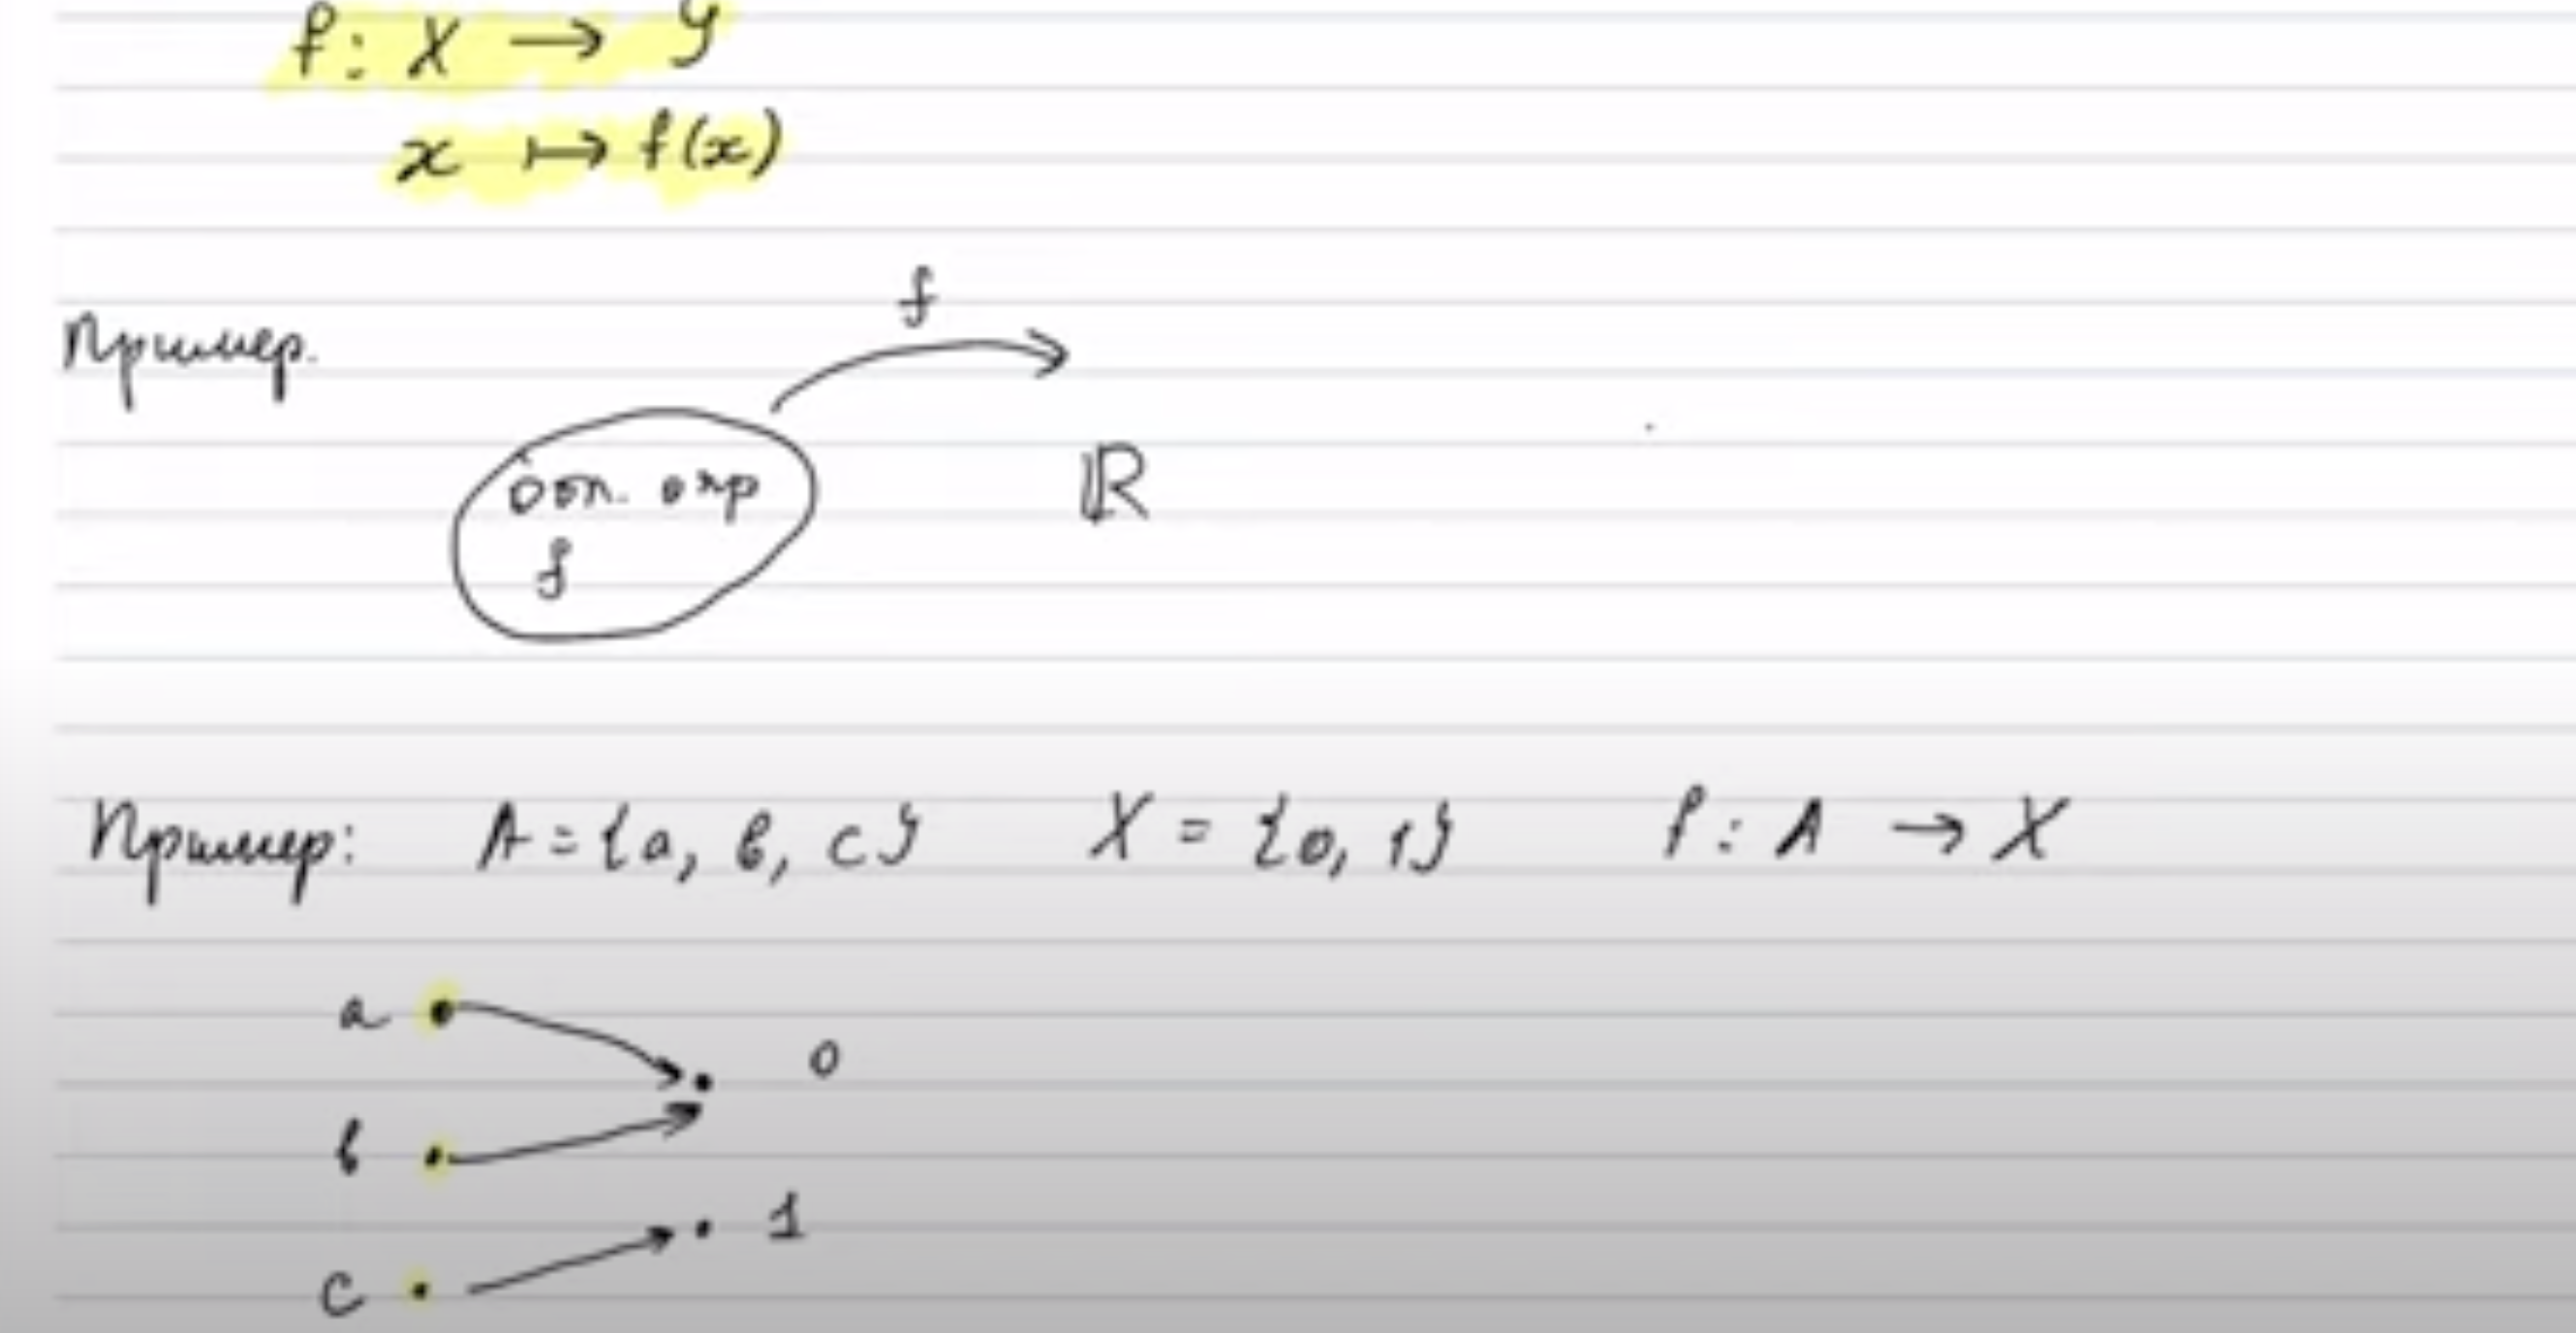 f: X → Y
x ↦ f(x)
f
Пример.
обл. опр
f
ℝ
Пример: A = {a, b, c} X = {0, 1} f: A → X
a
0
b
1
c